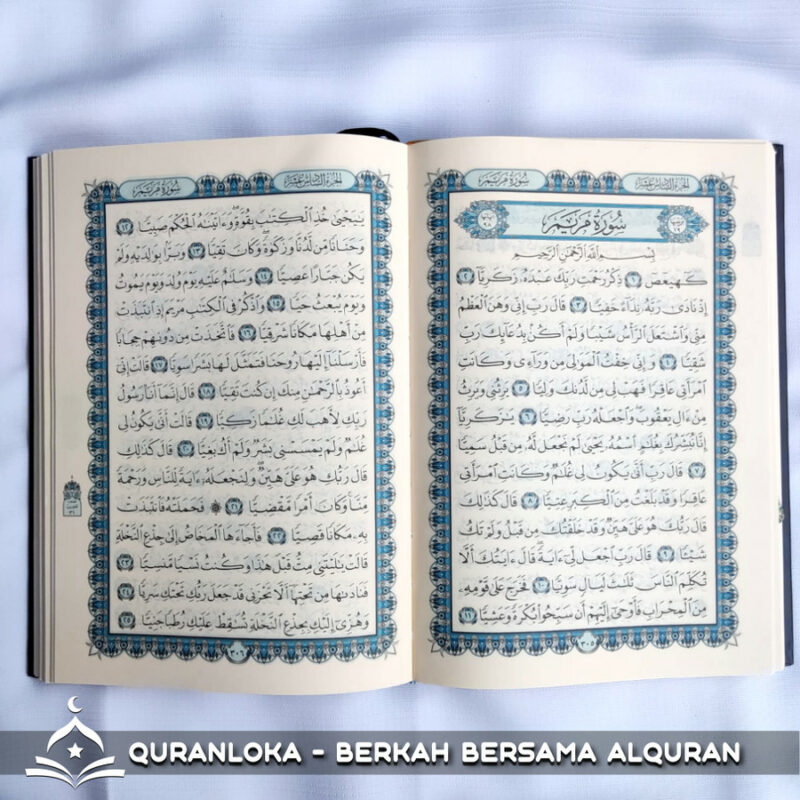 الجزء السادس عشر
سورة مريم
سُورَةُ مَرْيَمَ
بِسْمِ ٱللَّهِ ٱلرَّحْمَٰنِ ٱلرَّحِيمِ
كٓهيعٓصٓ ١ ذِكْرُ رَحْمَتِ رَبِّكَ عَبْدَهُۥ زَكَرِيَّآ ٢
إِذْ نَادَىٰ رَبَّهُۥ نِدَآءً خَفِيًّا ٣ قَالَ رَبِّ إِنِّى وَهَنَ ٱلْعَظْمُ
مِنِّى وَٱشْتَعَلَ ٱلرَّأْسُ شَيْبًا وَلَمْ أَكُنۢ بِدُعَآئِكَ رَبِّ
شَقِيًّا ٤ وَإِنِّى خِفْتُ ٱلْمَوَٰلِىَ مِن وَرَآءِى وَكَانَتِ
ٱمْرَأَتِى عَاقِرًا فَهَبْ لِى مِن لَّدُنكَ وَلِيًّا ٥ يَرِثُنِى وَيَرِثُ
مِنْ ءَالِ يَعْقُوبَ ۖ وَٱجْعَلْهُ رَبِّ رَضِيًّا ٦ يَٰزَكَرِيَّآ
إِنَّا نُبَشِّرُكَ بِغُلَٰمٍ ٱسْمُهُۥ يَحْيَىٰ لَمْ نَجْعَل لَّهُۥ مِن قَبْلُ سَمِيًّا
٧ قَالَ رَبِّ أَنَّىٰ يَكُونُ لِى غُلَٰمٌ وَكَانَتِ ٱمْرَأَتِى
عَاقِرًا وَقَدْ بَلَغْتُ مِنَ ٱلْكِبَرِ عِتِيًّا ٨ قَالَ كَذَٰلِكَ
قَالَ رَبُّكَ هُوَ عَلَىَّ هَيِّنٌ وَقَدْ خَلَقْتُكَ مِن قَبْلُ وَلَمْ تَكُ
شَيْـًٔا ٩ قَالَ رَبِّ ٱجْعَل لِّىٓ ءَايَةً ۚ قَالَ ءَايَتُكَ أَلَّا
تُكَلِّمَ ٱلنَّاسَ ثَلَٰثَ لَيَالٍ سَوِيًّا ١٠ فَخَرَجَ عَلَىٰ قَوْمِهِۦ
مِنَ ٱلْمِحْرَابِ فَأَوْحَىٰٓ إِلَيْهِمْ أَن سَبِّحُوا۟ بُكْرَةً وَعَشِيًّا ١١
٣٠٥
الجزء السادس عشر
سورة مريم
يَٰيَحْيَىٰ خُذِ ٱلْكِتَٰبَ بِقُوَّةٍ ۖ وَءَاتَيْنَٰهُ ٱلْحُكْمَ صَبِيًّا ١٢
وَحَنَانًا مِّن لَّدُنَّا وَزَكَوٰةً ۖ وَكَانَ تَقِيًّا ١٣ وَبَرًّۢا بِوَٰلِدَيْهِ وَلَمْ
يَكُن جَبَّارًا عَصِيًّا ١٤ وَسَلَٰمٌ عَلَيْهِ يَوْمَ وُلِدَ وَيَوْمَ يَمُوتُ
وَيَوْمَ يُبْعَثُ حَيًّا ١٥ وَٱذْكُرْ فِى ٱلْكِتَٰبِ مَرْيَمَ إِذِ ٱنتَبَذَتْ
مِنْ أَهْلِهَا مَكَانًا شَرْقِيًّا ١٦ فَٱتَّخَذَتْ مِن دُونِهِمْ حِجَابًا
فَأَرْسَلْنَآ إِلَيْهَا رُوحَنَا فَتَمَثَّلَ لَهَا بَشَرًا سَوِيًّا ١٧ قَالَتْ إِنِّىٓ
أَعُوذُ بِٱلرَّحْمَٰنِ مِنكَ إِن كُنتَ تَقِيًّا ١٨ قَالَ إِنَّمَآ أَنَا۠ رَسُولُ
رَبِّكِ لِأَهَبَ لَكِ غُلَٰمًا زَكِيًّا ١٩ قَالَتْ أَنَّىٰ يَكُونُ لِى
غُلَٰمٌ وَلَمْ يَمْسَسْنِى بَشَرٌ وَلَمْ أَكُ بَغِيًّا ٢٠ قَالَ كَذَٰلِكِ
قَالَ رَبُّكِ هُوَ عَلَىَّ هَيِّنٌ ۖ وَلِنَجْعَلَهُۥٓ ءَايَةً لِّلنَّاسِ وَرَحْمَةً
مِّنَّا ۚ وَكَانَ أَمْرًا مَّقْضِيًّا ٢١ ۞ فَحَمَلَتْهُ فَٱنتَبَذَتْ
بِهِۦ مَكَانًا قَصِيًّا ٢٢ فَأَجَآءَهَا ٱلْمَخَاضُ إِلَىٰ جِذْعِ ٱلنَّخْلَةِ
قَالَتْ يَٰلَيْتَنِى مِتُّ قَبْلَ هَٰذَا وَكُنتُ نَسْيًا مَّنسِيًّا ٢٣
فَنَادَىٰهَا مِن تَحْتِهَآ أَلَّا تَحْزَنِى قَدْ جَعَلَ رَبُّكِ تَحْتَكِ سَرِيًّا ٢٤
وَهُزِّىٓ إِلَيْكِ بِجِذْعِ ٱلنَّخْلَةِ تُسَٰقِطْ عَلَيْكِ رُطَبًا جَنِيًّا ٢٥
٣٠٦
QURANLOKA - BERKAH BERSAMA ALQURAN